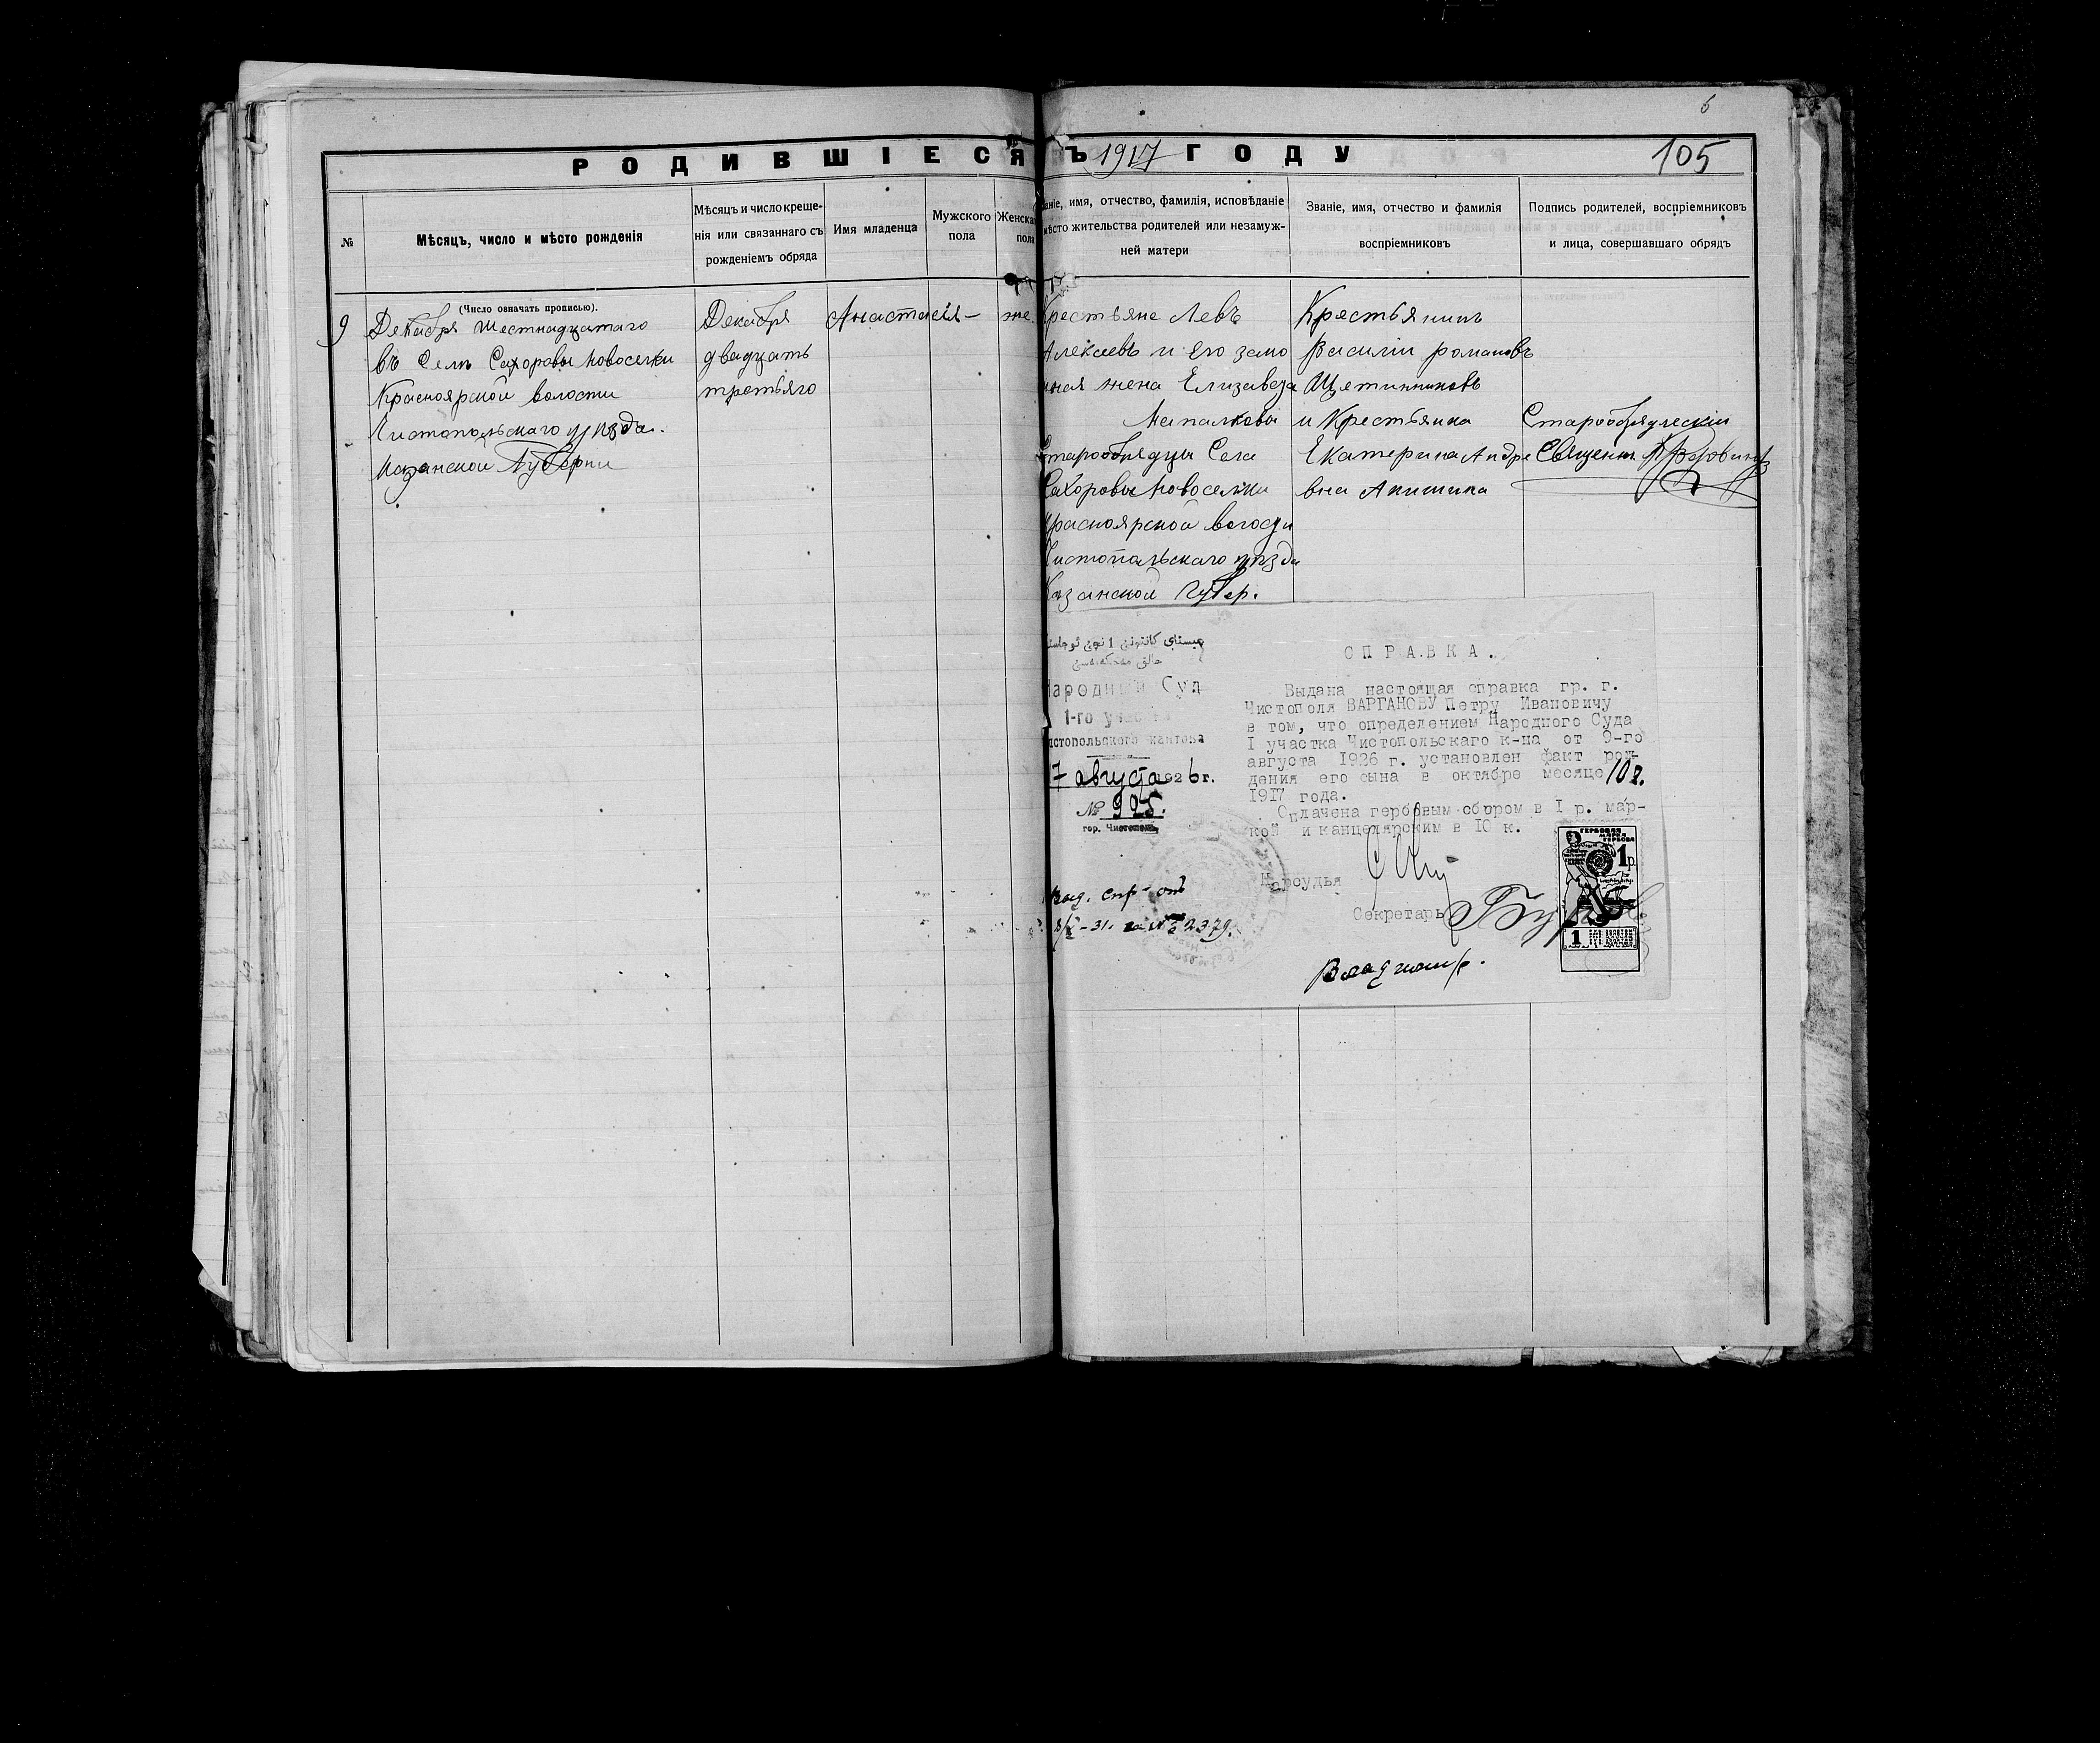 6
РОДИВШІЕСЯ
Ъ 1917 ГОДУ
105
№
Мѣсяцъ, число и мѣсто рожденія
Мѣсяцъ и число креще-
нія или связаннаго съ
рожденіемъ обряда
Имя младенца
Мужского
пола
Женска
пола
аніе, имя, отчество, фамилія, исповѣданіе
мѣсто жительства родителей или незамуж-
ней матери
Званіе, имя, отчество и фамилія
воспріемниковъ
Подпись родителей, воспріемниковъ
и лица, совершавшаго обрядъ
(Число означать прописью).
9
Декабря шестнадцатаго
въ Селѣ Сахоровы Новоселки
Красноярской волости
Чистопольскаго уѣзда.
Казанской Губерни
Декабря
двадцать
третьяго
Анастасія –
же.
Крестьяне Левъ
Алексеевъ и его зако
ная жена Елизавета
старообрядцы Села
Сахоровы Новоселки
Красноярской волости
Чистопольскаго уѣзда
Казанской Губер.
Крестьянинъ
Василіи романовъ
Щетинниковъ
и Крестьянка
Екатерина Андре
вна Акишина
Старообрядческіи
Священ.
Народный Суд
1-го участка
истопольского кантона
7 августа 1926 г.
№ 925.
гор. Чистополь
Выд. спр– отъ
8/X – 31. за № 2379.
СПРАВКА.
Выдана настоящая справка гр. г.
Чистополя ВАРГАНОВУ Петру Ивановичу
в том, что определением Народного Суда
I участка Чистопольскаго к-на от 9-го
августа 1926 г. установлен факт рож-
дения его сына в октябре месяце 10 г.
1917 года.
Оплачена гербовым сбором в I р. мар-
кой и канцелярским в 10 к.
Нарсудья
Секретарь
Владимир.
ГЕРБОВАЯ
МАРКА
1 р.
1